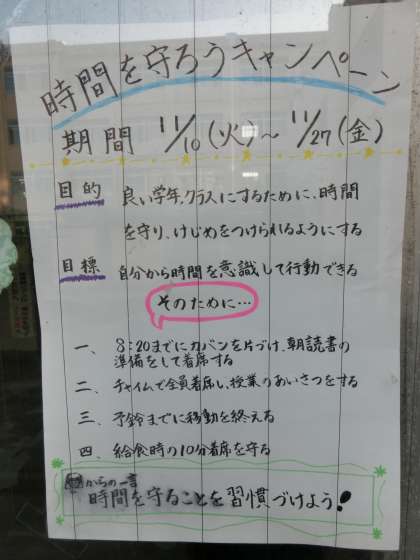 時間を守ろうキャンペーン
期間 11/10(火)~11/27(金)
目的 良い学年、クラスにするために、時間
を守り、けじめをつけられるようにする
目標 自分から時間を意識して行動できる
そのために…
一、8:20までにカバンを片づけ、朝読書の
準備をして着席する
二、チャイムで全員着席し、授業のあいさつをする
三、予鈴までに移動を終える
四、給食時の10分着席を守る
からの一言
時間を守ることを習慣づけよう!